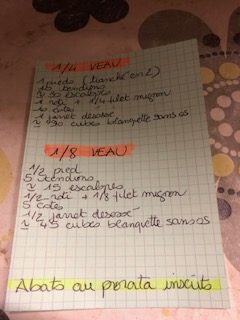 1/4 VEAU
1 pied (tranché en 2)
10 tendions
≈ 30 escalopes
1 roti + 1/4 filet mignon
10 cotes
1 jarret desossé
≈ 90 cubes blanquette sans os
1/8 VEAU
1/2 pied
5 tendions
≈ 15 escalopes
1/2 roti + 1/8 filet mignon
5 cotes
1/2 jarret desossé
≈ 45 cubes blanquette sans os
Abats au prorata inscrits